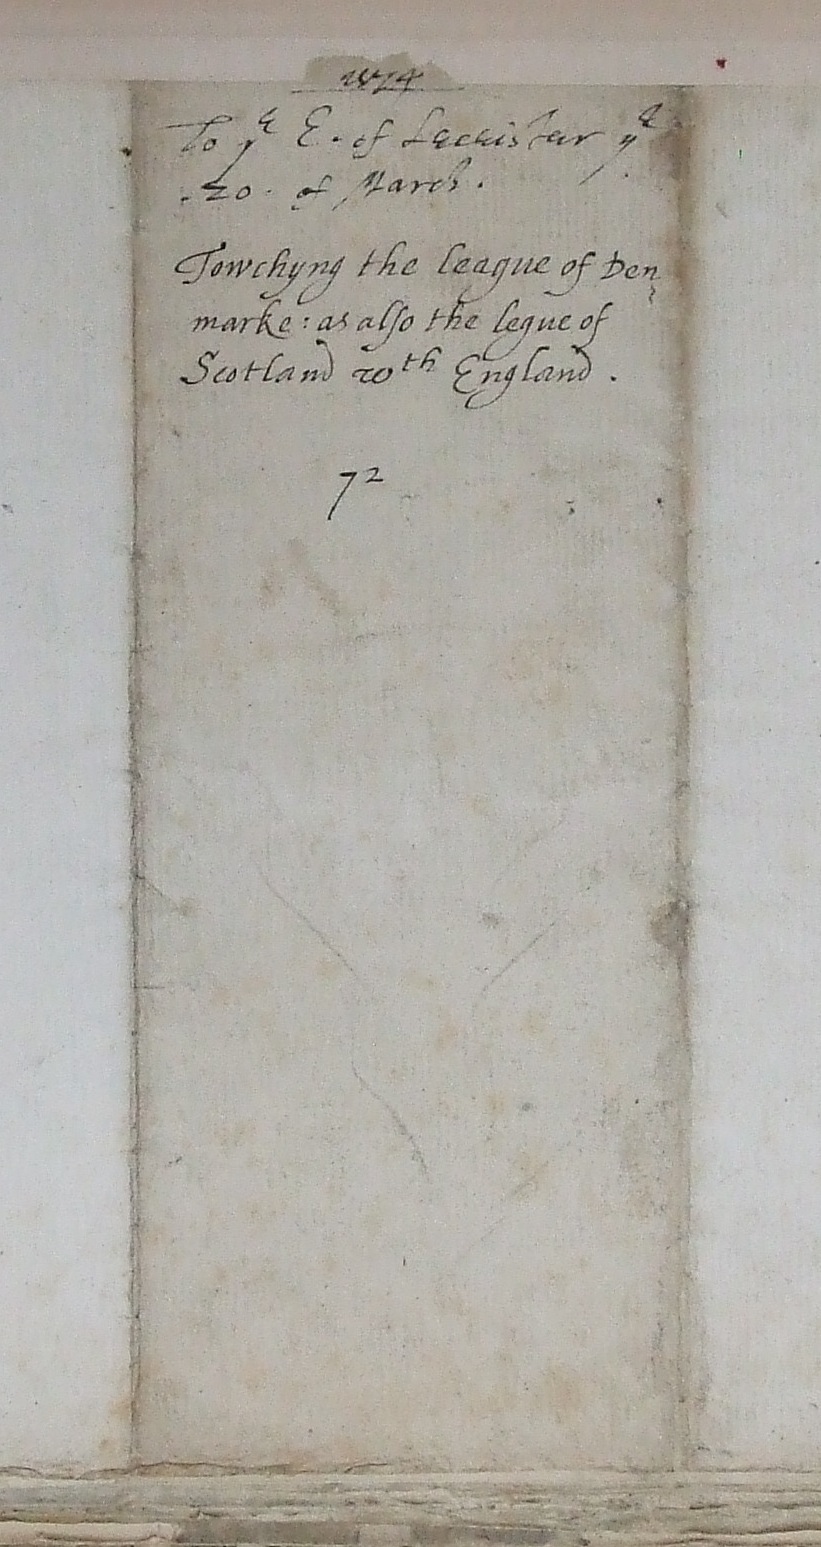 To yͤ E. of Leceister yͤ
.20. of March.
Towchyng the league of Den
marke: as also the legue of
Scotland wᵗʰ England.
72